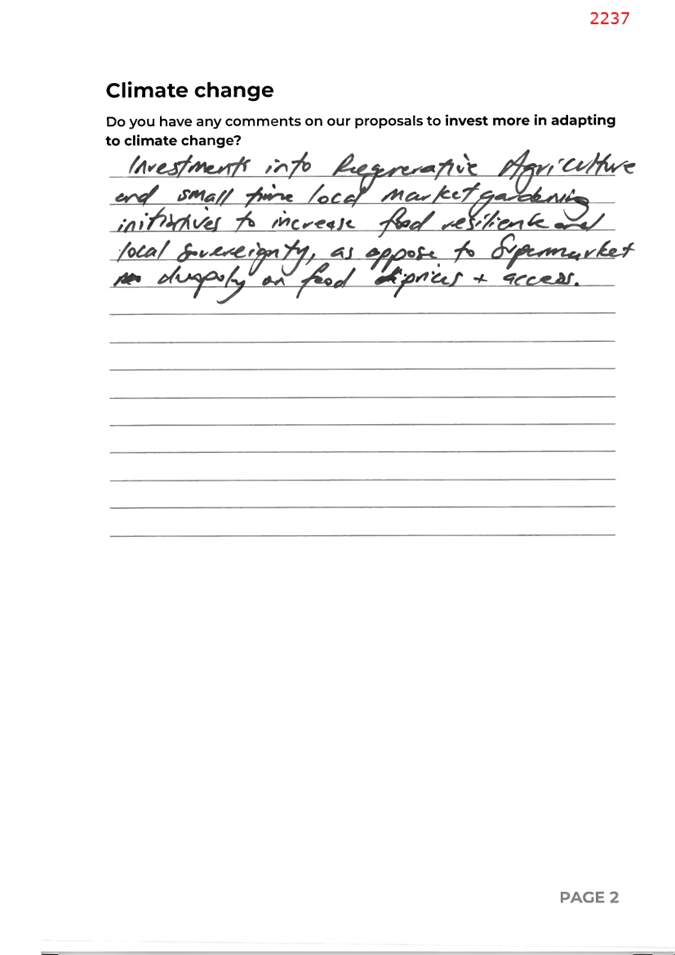 2237
Climate change
Do you have any comments on our proposals to invest more in adapting
to climate change?
Investments into Regenerative Agriculture
and small time local market gardening
initiatives to increase food resilience and
local sovereignty, as oppose to Supermarket
duopoly on food prices + access.
PAGE 2